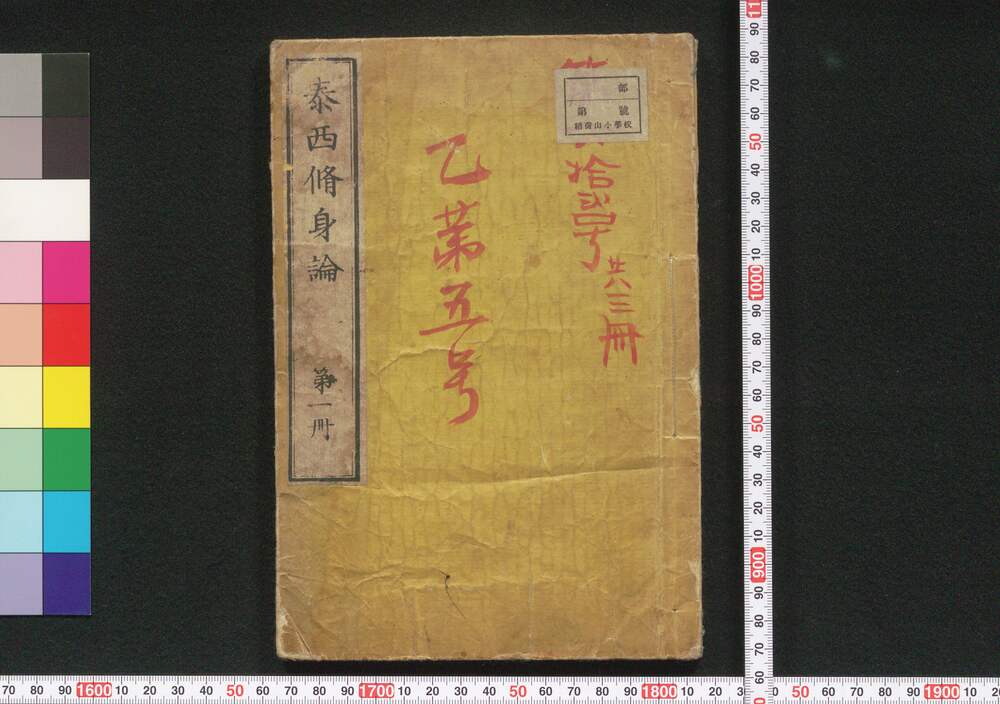 泰西脩身論
第一冊
部
第 號
稻荷山小學校
拾弐号
共三冊
乙第五号
70 80 90 1600 10 20 30 40 50 60 70 80 90 1700 10 20 30 40 50 60 70 80 90 1800 10 20 30 50 60 70 80 90 1900 10
90 80 70 60 50 40 30 20 10 1000 90 80 70 60 50 40 30 20 10 900 90 80 70 60